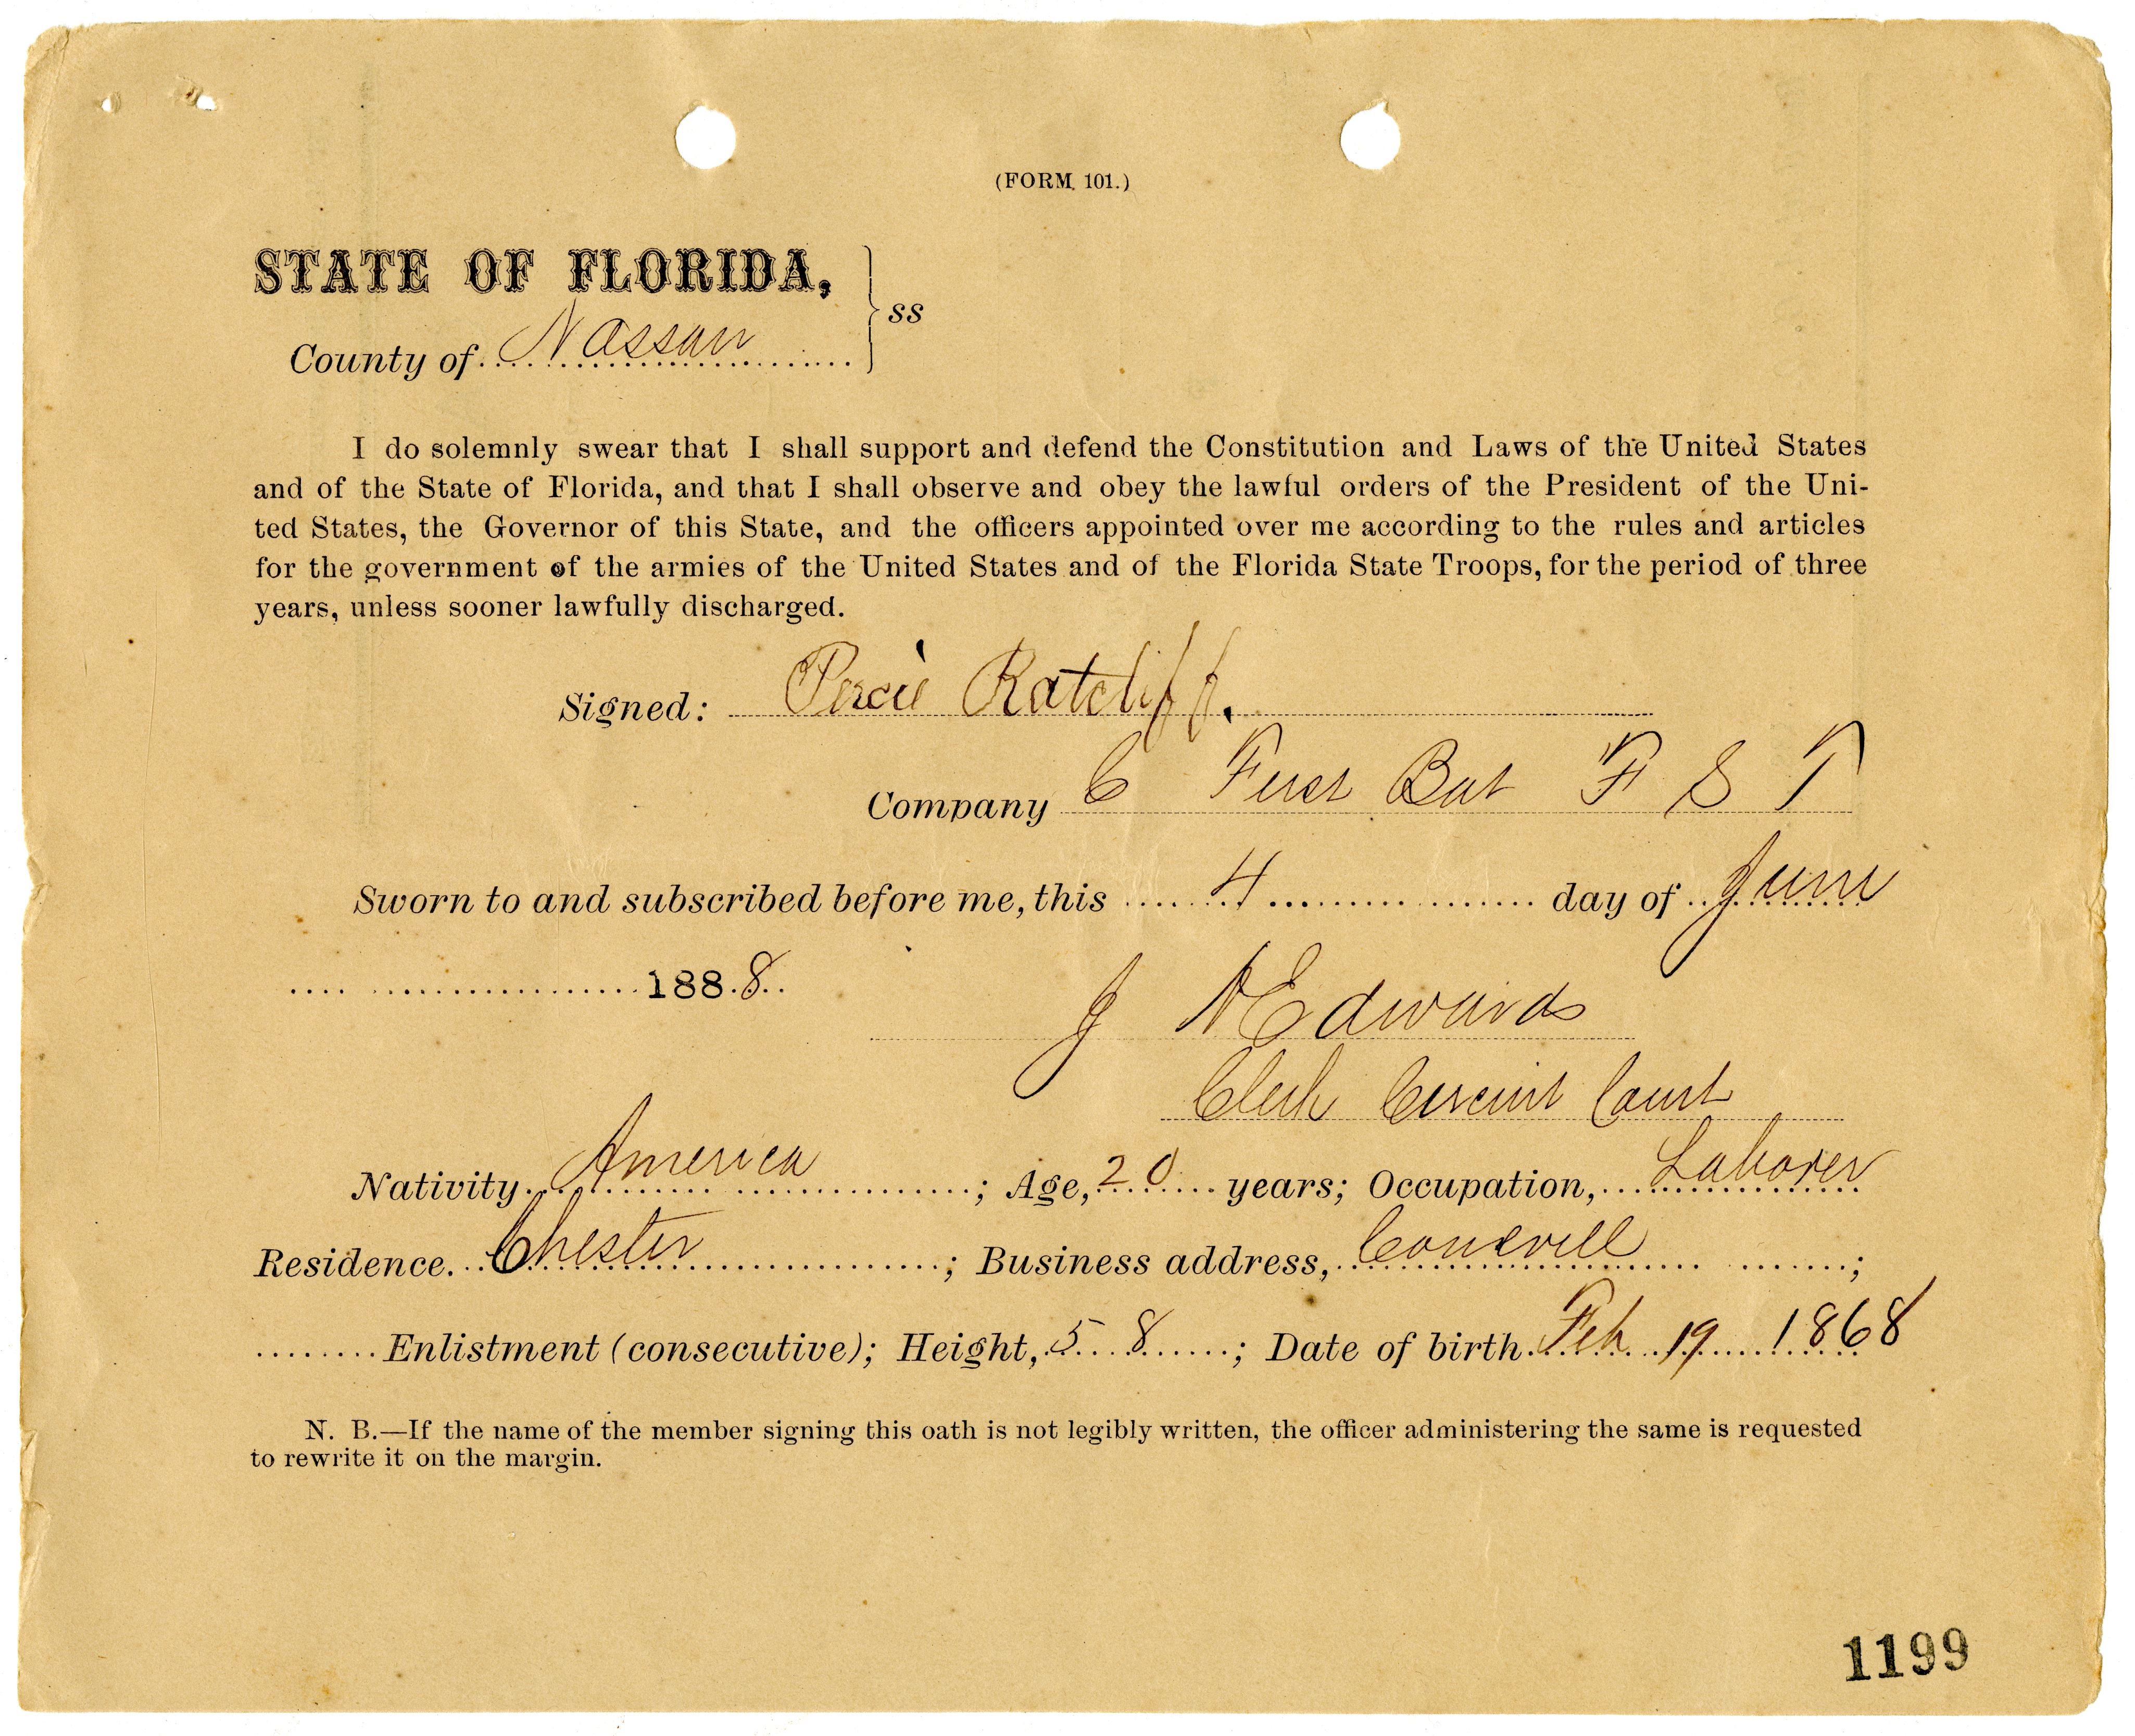 (FORM 101.)
STATE OF FLORIDA,
County of Nassau } ss
I do solemnly swear that I shall support and defend the Constitution and Laws of the United States
and of the State of Florida, and that I shall observe and obey the lawful orders of the President of the Uni-
ted States, the Governor of this State, and the officers appointed over me according to the rules and articles
for the government of the armies of the United States and of the Florida State Troops, for the period of three
years, unless sooner lawfully discharged.
Signed: Percie Ratcliff.
Company C First Bat F S T
Sworn to and subscribed before me, this 4 day of June
1888
J N Edwards
Clerk Circuit Court
Nativity America ; Age, 20 years; Occupation, Laborer
Residence. Chester ; Business address, ;
Enlistment (consecutive); Height, 5 8 ; Date of birth Feb 19 1868
N. B.—If the name of the member signing this oath is not legibly written, the officer administering the same is requested
to rewrite it on the margin.
1199